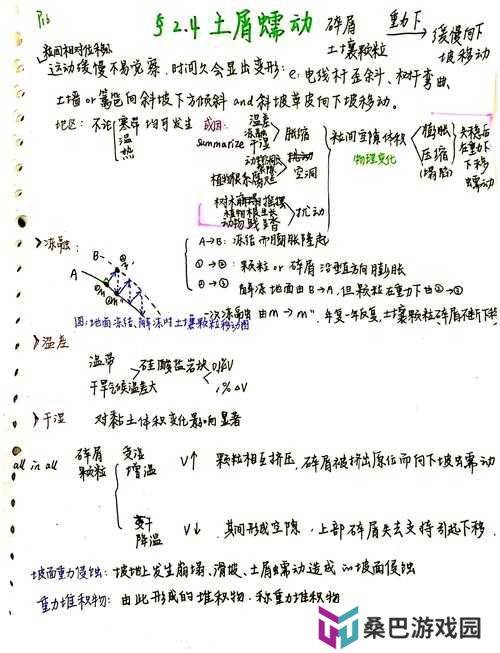 P15
§2.4 土屑蠕动 碎屑 土壤颗粒 重力下 缓慢向下坡移动
颗粒间相对位移
运动缓慢不易觉察，时间久会显出变形：e：电线杆歪斜、树干弯曲、
土墙 or 篱笆向斜坡下方倾斜 and 斜坡草皮向下坡移动。
地区：不论寒 温 热 带均可发生
成因 summarize
温差
冻融
干湿
胀缩
植物根系腐烂
空洞
树木 摇摆
植物根生长
动物践踏
扰动
粒间空隙体积
物理变化
膨胀
压缩
(塌陷)
失稳后
在重力下
下移
蠕动
>冻融：
A B
A→B：冻结而膨胀隆起
①→②：颗粒 or 碎屑沿垂直方向膨胀
②→③ 解冻地面由B→A，但颗粒在重力下由②→③
一次冻融由m→m''，年复一年反复，土壤颗粒碎屑不断下移
图：地面冻结、解冻时土壤颗粒移动图
>温差
温带
干旱气候温差大
硅酸盐岩块
1% ΔV
>干湿 对黏土体积变化影响显著
all in all 碎屑 颗粒
受湿
增温
V↑ 颗粒相互挤压，碎屑被挤出原位而向下坡蠕动
变干
降温
V↓ 其间形成空隙，上部碎屑失去支持引起下移．
坡面重力侵蚀：坡地上发生崩塌、滑坡、土屑蠕动造成的坡面侵蚀
重力堆积物：由此形成的堆积物．称重力堆积物
桑巴游戏园